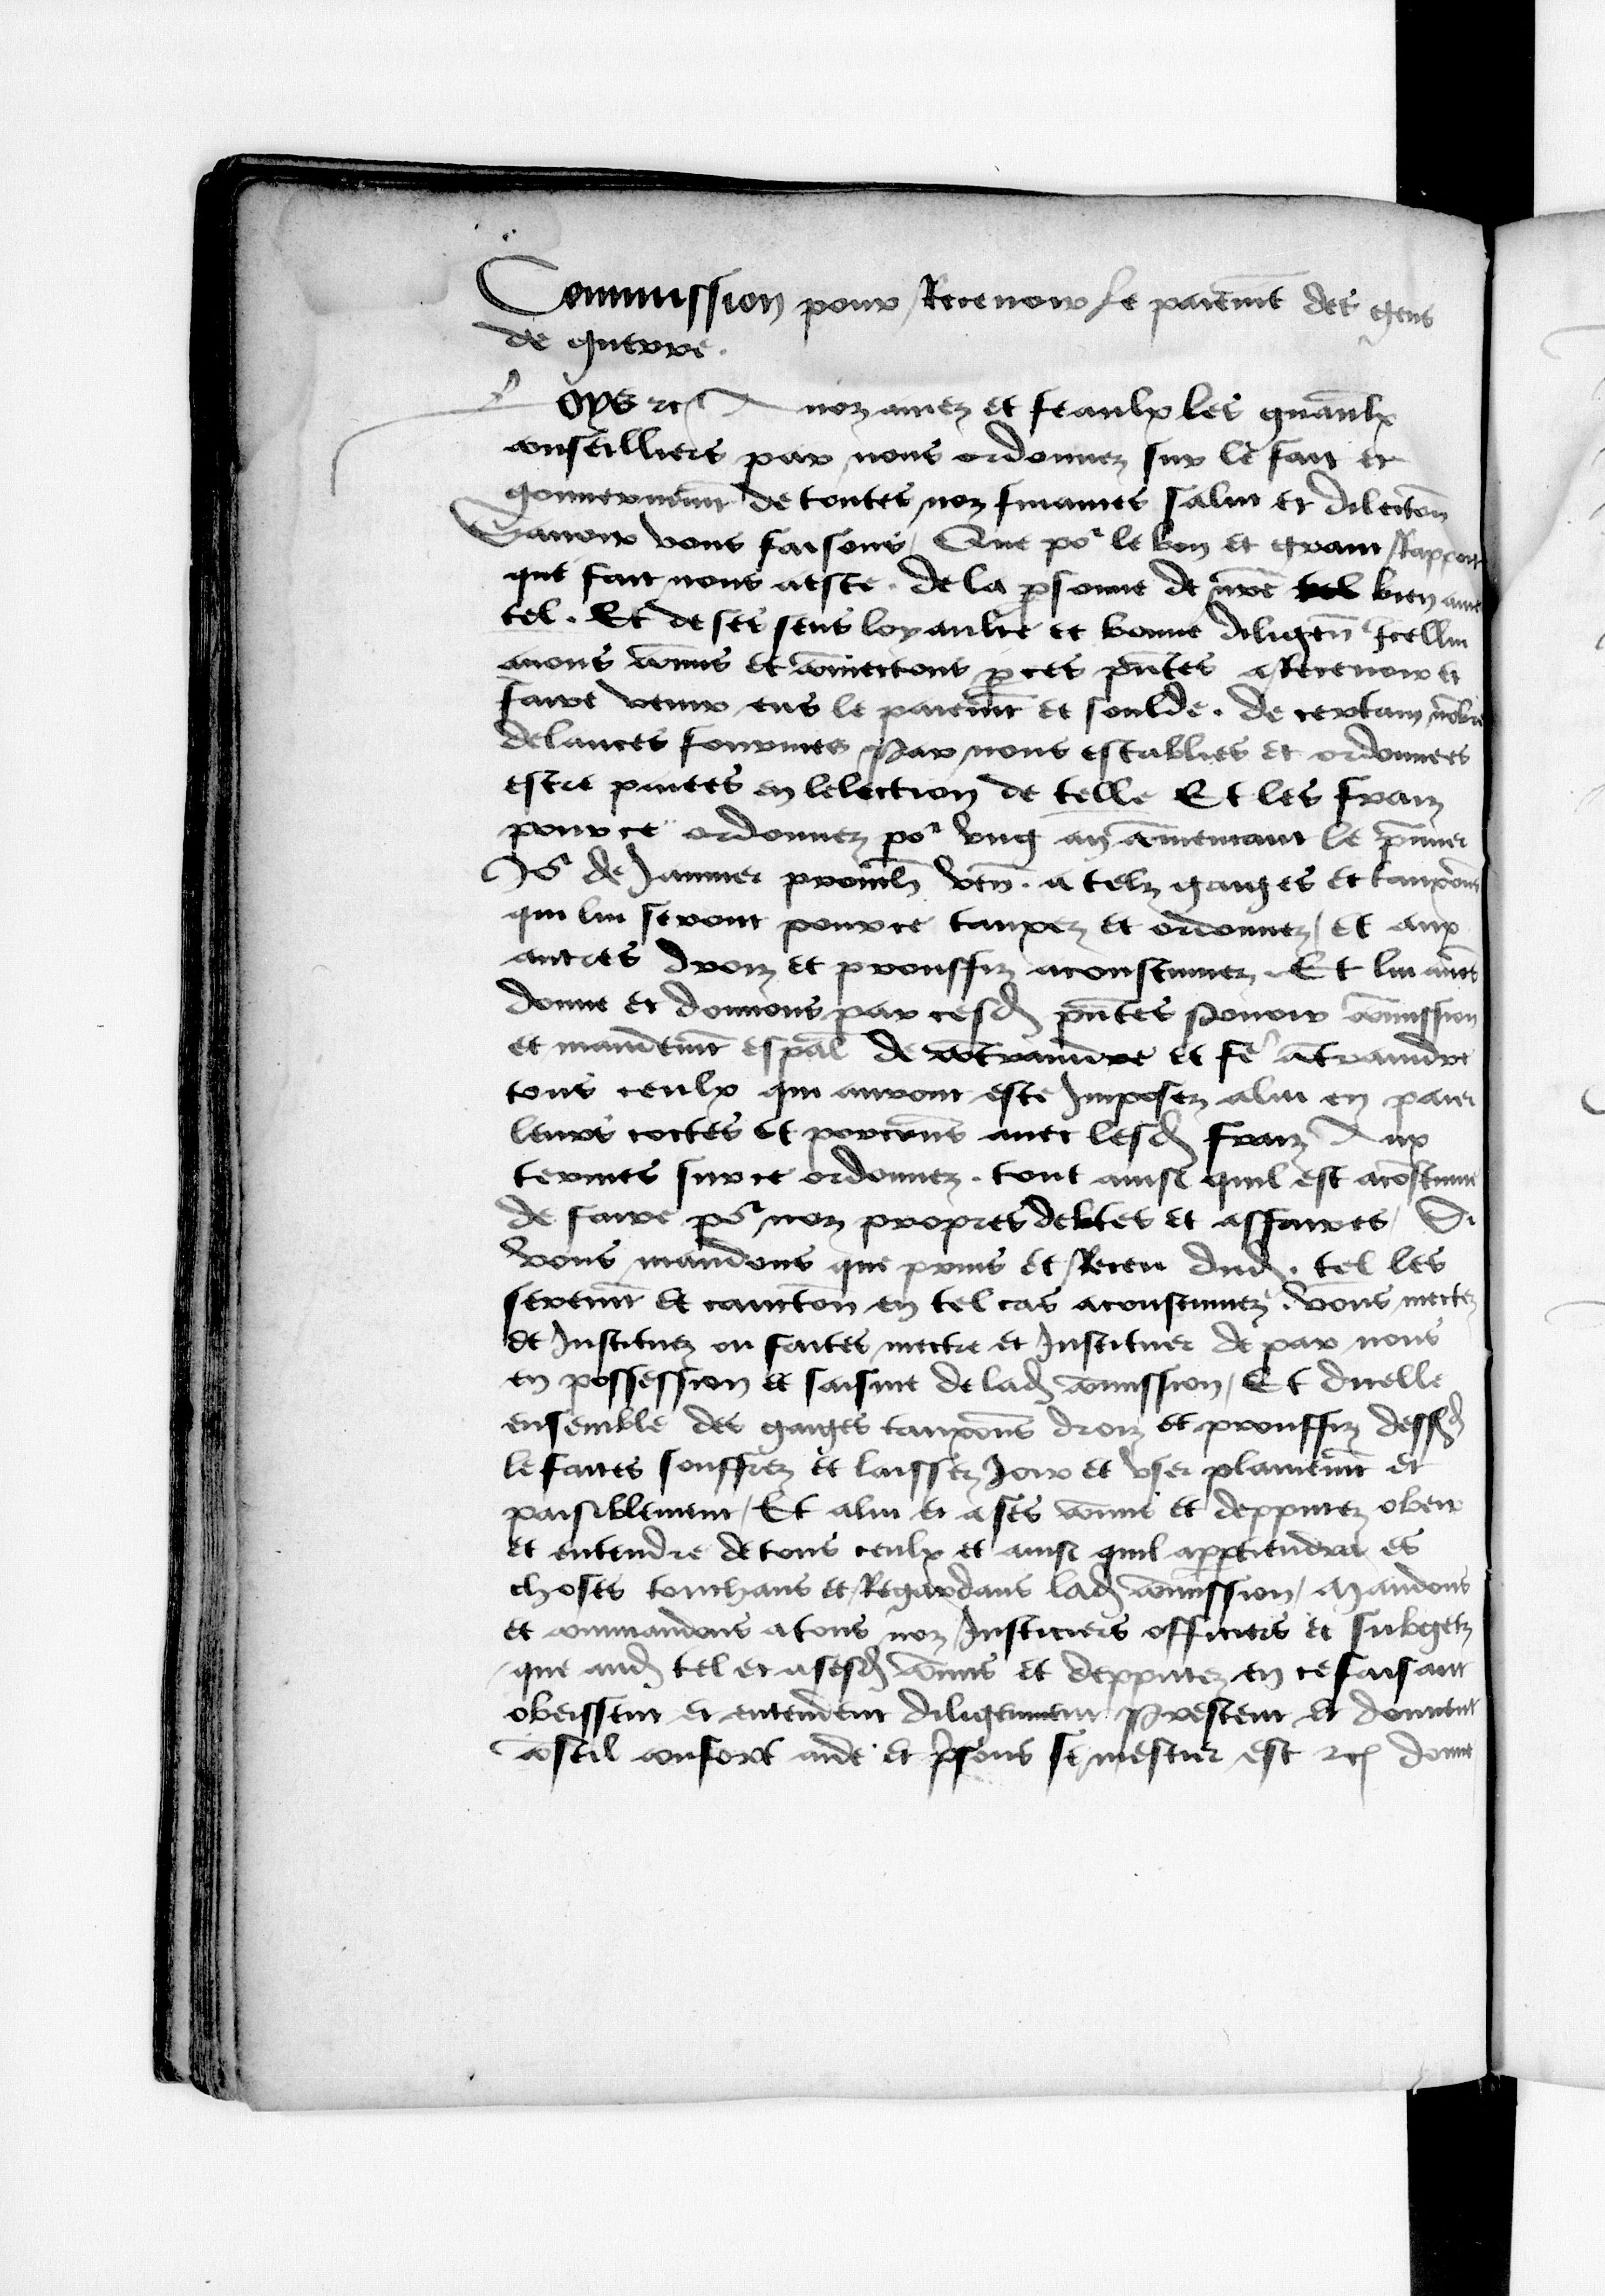 Commission pour Recevoir le paiemt des gens
de guerre.
Loys rc A noz amez et feaulx les gnaulx
conseilliers par nous ordonnez sur le fait et
gouvernemt de toutes noz finances salut et dilecton
Savoir vous faisons Que por le bon et grant Rapport
que fait nous aeste. de la psonne de nre bien ame
tel. Et de ses sens loyaulte et bonne diligen Icellui
avons commis et commectons p ces pntes a Recevoir et
faire venir ens le paiemt et soulde. de certain nobre
delances fournies Par nous establies et ordonnees
estre paiees en lelection de telle Et les fraiz
pour ce ordonnez por ung an commencant le pmier
Jor de Janvier prouchn ven. a telz gaiges et tauxons
qui lui seront pource tauxez et ordonnez et aux
autres droiz et prouffiz acoustumez. Et lui avons
donne et donnons par cesd pntes Povoir commission
et mandemt espal de contraindre et fe contraindre
tous ceulx qui auront este Imposez alui en paier
leurs coctes et porcions avec lesd fraiz Aux
termes sur ce ordonnez. tout ainsi quil est acostume
de faire por noz propres debtes et affaires Si
vous mandons que prins et Receu dud. tel les
seremt et caucton en tel cas acoustumez. vous mectez
et Instituez ou faites mectre et Instituer de par nous
en possession et saisine de lad commission Et dicelle
ensemble des gaiges tauxons droiz et prouffiz dessd
le faites souffrez et laissez Joir et user plainemt et
paisiblement Et alui et a ses commis et depputez obeir
et entendre de tous ceulx et ainsi quil apptiendra es
choses touchans et Regardans lad commission Mandons
et commandons atous noz Justiciers officiers et subgetz
que aud tel et a sesd commis et depputez en ce faisant
obeissent et entendent diligemment Prestent et donnent
conseil confort aide et prisons se mestier est rc donne